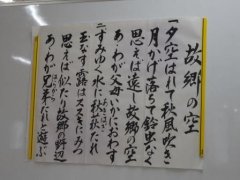 故郷の空
一夕空はれて秋風吹き
月かげ落ちて鈴虫なく
思えば遠し故郷の空
あゝわが父母いかにおわす
二すみゆく水に秋萩たれ
玉なす露はススキにみつ
思えば似たり故郷の野辺
あゝわが兄弟たれと遊ぶ